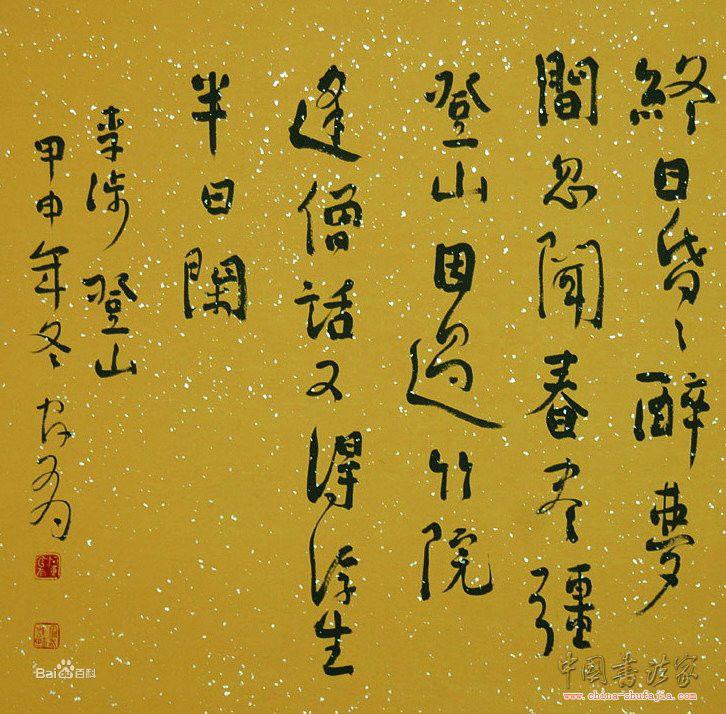 終日昏々醉夢
間忽聞春盡彊
登山因過竹院
逢僧話又得浮生
半日閑
李涉登山
甲申年冬
Bai百科
中國書法家
www.china-shufajia.com